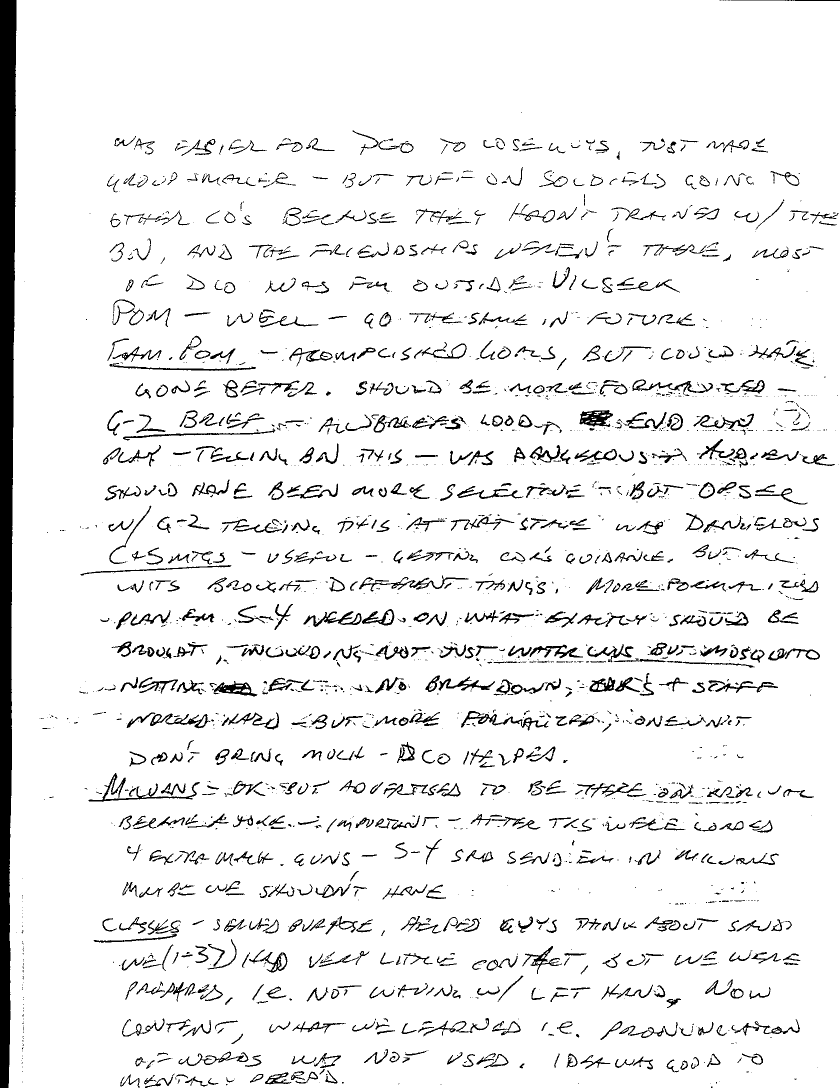 WAS EASIER FOR DCO TO LOSE GUYS, JUST MADE
GROUP SMALLER - BUT TUFF ON SOLDIERS GOING TO
OTHER CO'S BECAUSE THEY HADN'T TRAINED W/ THE
BN, AND THE FRIENDSHIPS WEREN'T THERE, MOST
OF DCO WAS FM OUTSIDE VILSECK
POM - WELL - GO THE SAME IN FUTURE.
FAM. POM - ACOMPLISHED GOALS, BUT COULD HAVE
GONE BETTER. SHOULD BE MORE FORMALIZED -
G-2 BRIEF - ALL BRIEFS GOOD, END RUN (?)
PLAY - TELLING BN THIS - WAS DANGEROUS - AUDIENCE
SHOULD HAVE BEEN MORE SELECTIVE - BUT OPSEC
W/ G-2 TELLING THIS AT THAT STAGE WAS DANGEROUS
C+S MTGS - USEFUL - GETTING CDR'S GUIDANCE. BUT ALL
UNITS BROUGHT DIFFERENT THINGS. MORE FORMALIZED
PLAN FM S-4 NEEDED ON WHAT EXACTLY SHOULD BE
BROUGHT, INCLUDING NOT JUST WATER CANS BUT MOSQUITO
NETTING ETC - NO BREAKDOWN, CDR'S + STAFF
WORKED HARD - BUT MORE FORMALIZED, ONE UNIT
DIDN'T BRING MUCH - DCO HELPED.
MILVANS - OK BUT ADVERTISED TO BE THERE ON ARRIVAL
BECAME A JOKE. - IMPORTANT. - AFTER TKS WERE LOADED
4 EXTRA MACH. GUNS - S-4 SAID SEND 'EM IN MILVANS
MAYBE WE SHOULDN'T HAVE
CLASSES - SERVED PURPOSE, HELPED GUYS THINK ABOUT SAUDI
WE (1-37) HAD VERY LITTLE CONTACT, BUT WE WERE
PREPARED, I.E. NOT WAVING W/ LFT HAND, NOW
CONTENT, WHAT WE LEARNED I.E. PRONUNCIATION
OF WORDS WAS NOT USED. IDEA WAS GOOD TO
MENTALLY PREP'D.